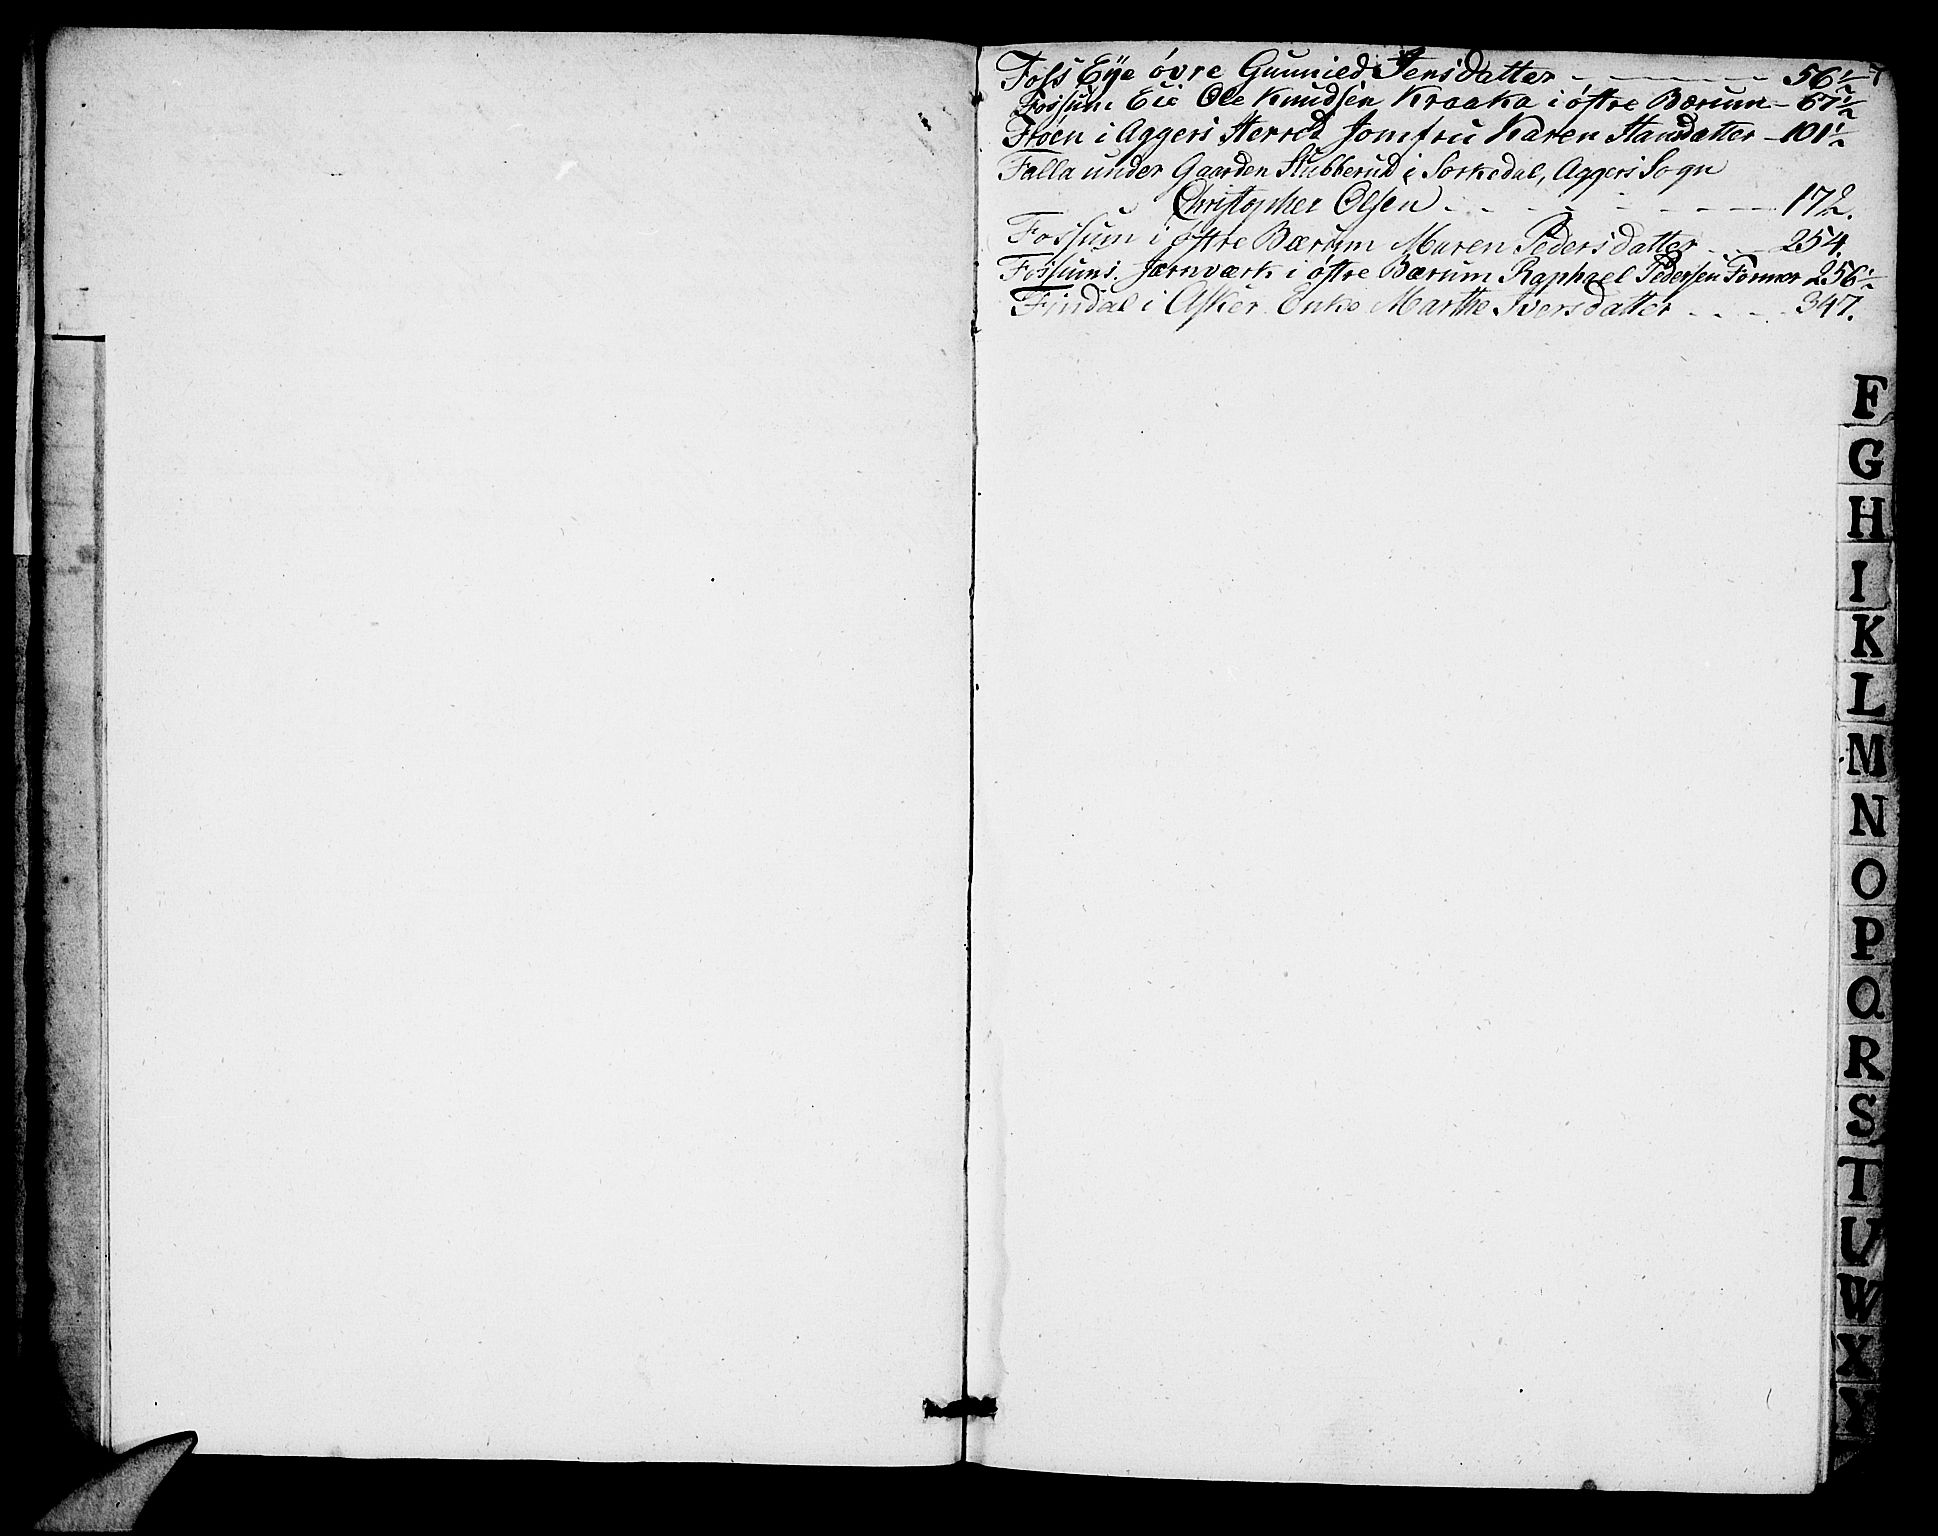 Foss Eye övre Gunnied Jensdatter - - - - 56½ 7
Fossum Eie Ole Knudsen Kraaka i östre Bærum - 67½
Fröen i Aggers Herred Jomfru Karen Hansdatter - 101½
Falla under Gaarden Stubberud i Sorkedal, Aggers Sogn
Christopher Olsen - - - - - - 172.
Fossum i östre Bærum Maren Pedersdatter - - 254.
Fossums Jærnværk i östre Bærum Raphael Pedersen Former 256½
Findal i Asker Enke Marthe Iversdatter - - - - 347.
F
G
H
I
K
L
M
N
O
P
Q
R
S
T
U
W
X